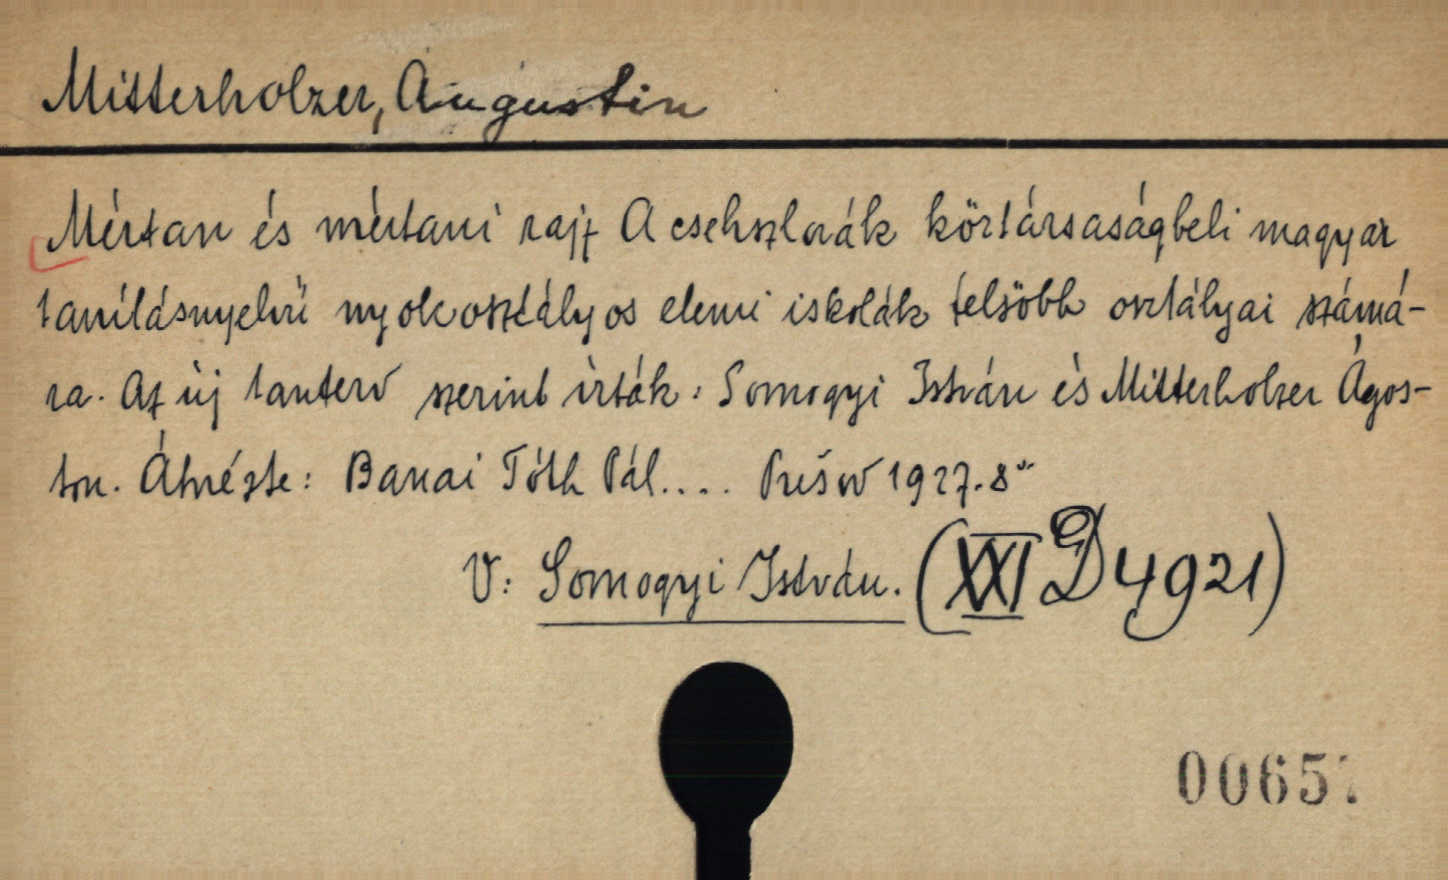 Mitterholzer, Augustin
Mértan és mértani rajz A csehszlovák köztársaságbeli magyar
tanításnyelvű nyolcosztályos elemi iskolák felsőbb osztályai számá-
ra. Az új tanterv szerint írták: Somogyi István és Mitterholzer Ágos-
ton. Átnézte: Banai Tóth Pál.... Prešov 1927. 8°
V: Somogyi István. (XXI D 4921)
0065